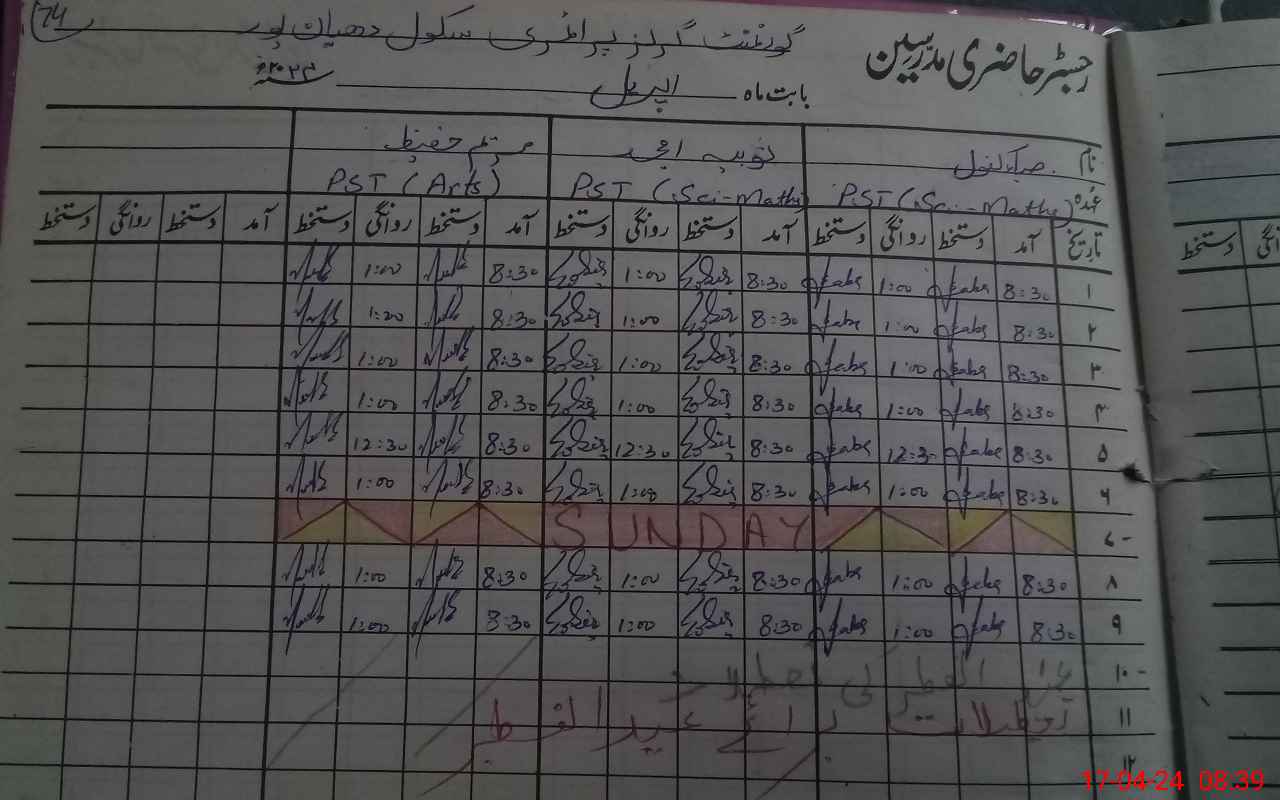 74
رجسٹر حاضری مدرسین
گورنمنٹ گرلز پرائمری سکول دھیان پور
بابت ماہ اپریل
نام صباء کنول ثوبیہ مریم حفیظ
عہدہ PST (Sci-Math) PST (Sci-Math) PST (Arts)
تاریخ آمد دستخط روانگی دستخط آمد دستخط روانگی دستخط آمد دستخط روانگی دستخط آمد دستخط روانگی دستخط
۱ 8:30 1:00 8:30 1:00 8:30 1:00
۲ 8:30 1:00 8:30 1:00 8:30 1:00
۳ 8:30 1:00 8:30 1:00 8:30 1:00
۴ 8:30 1:00 8:30 1:00 8:30 1:00
۵ 8:30 12:30 8:30 12:30 8:30 12:30
۶ 8:30 1:00 8:30 1:00 8:30 1:00
۷- SUNDAY
۸ 8:30 1:00 8:30 1:00 8:30 1:00
۹ 8:30 1:00 8:30 1:00 8:30 1:00
۱۰- الفطر کی تعطیلات
۱۱ تعطیلات برائے عید الفطر
۱۲
دستخط
17-04-24 08:39